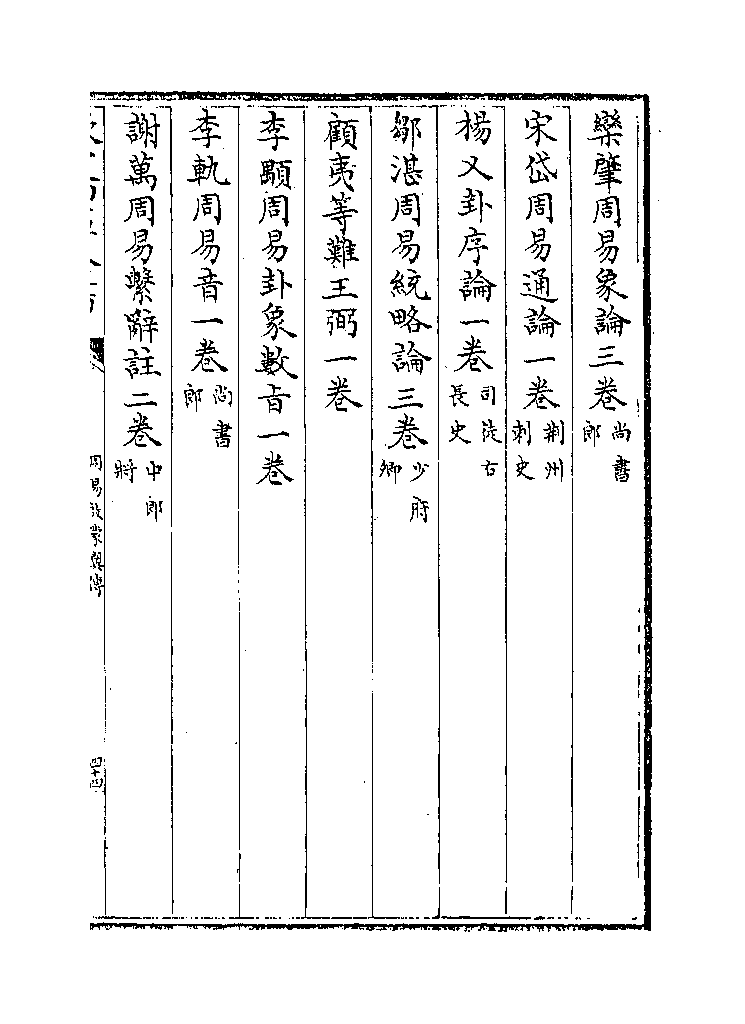 欒肇周易象論三卷尚書郎
宋岱周易通論一卷荆州刺史
楊乂卦序論一卷司徒右長史
鄒湛周易統略論三卷少府卿
顧夷等難王弼一卷
李顒周易卦象數旨一卷
李軌周易音一卷尚書郎
謝萬周易繫辭註二卷中郎將
周易啟蒙翼傳
四十四